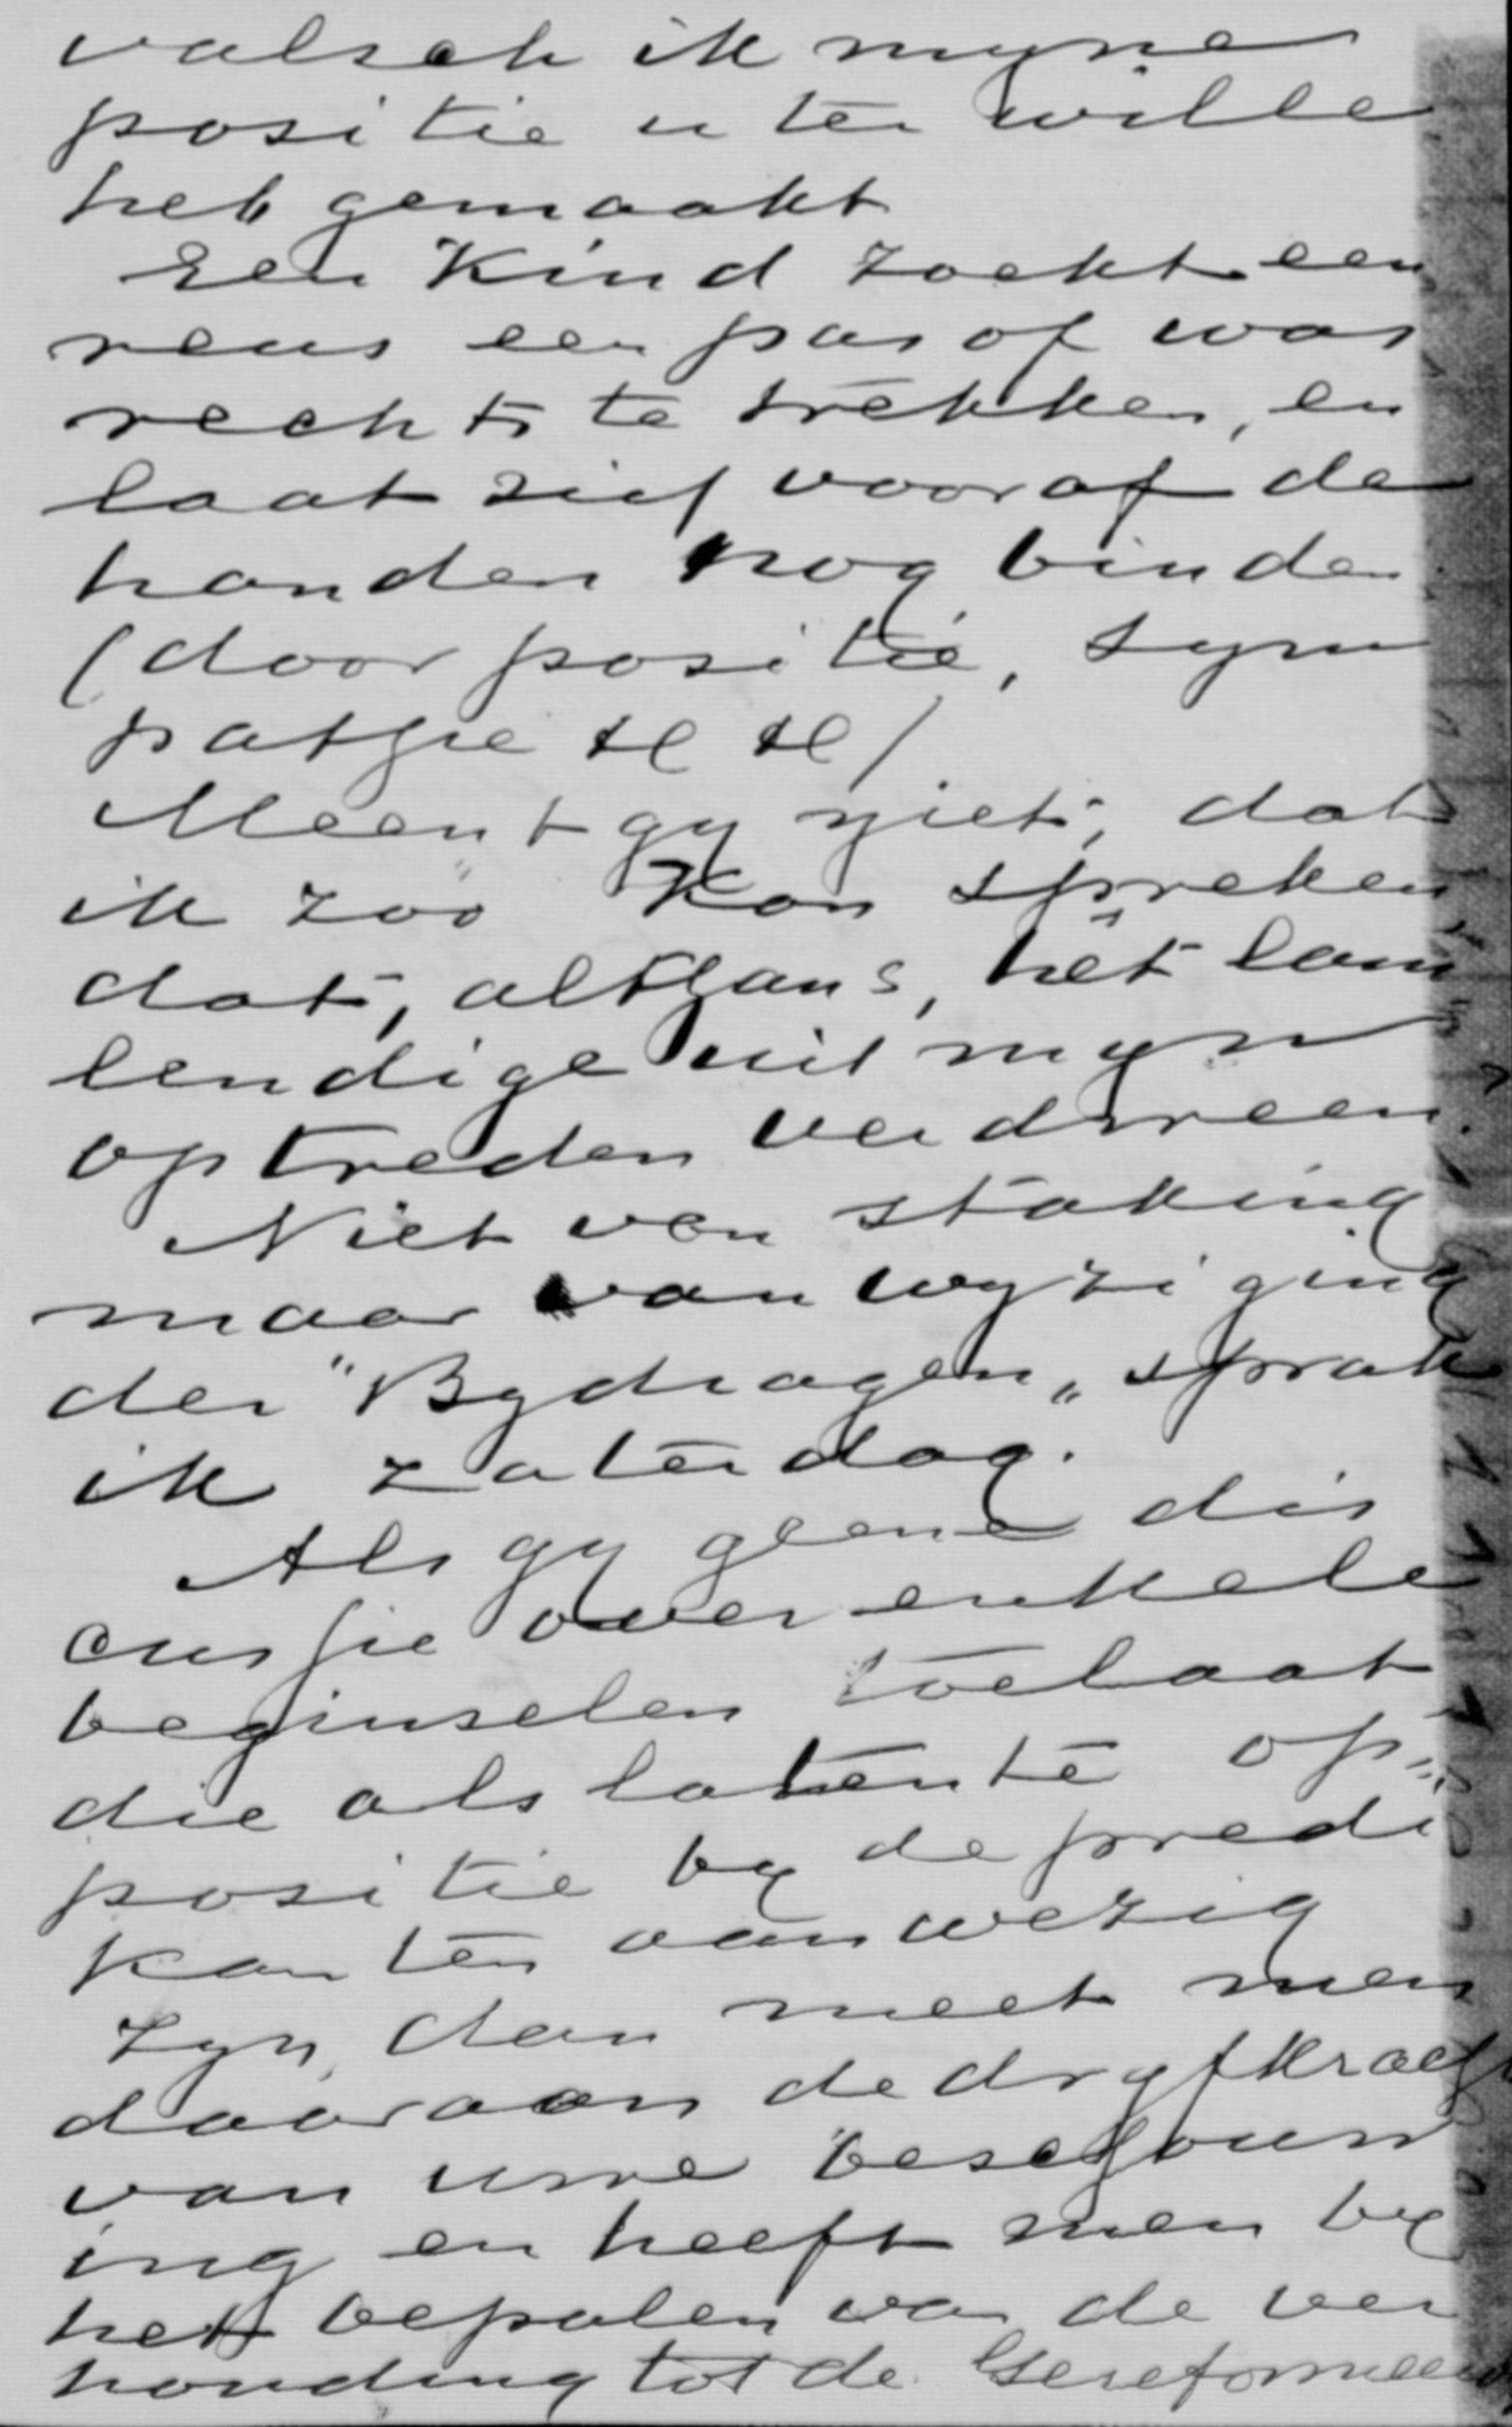 valsch ik myne
positie u ter wille
heb gemaakt
Een Kind zoekt een
reus een pas of wat
rechts te trekken, en
laat zich vooraf de
handen nog binden
(door positie, sym
pathie &c &c)
Meent gy niet, dat
ik zoo kon spreken
dat, althans, het lam
lendige uit myn
optreden verdween
Niet van staking
maar van wyziging
der "Bydragen„ sprak
ik zaterdag.
Als gy geene dis
cussie over enkele
beginselen toelaat
die als latente op„
positie by de predi
kanten aanwezig
zyn, dan meet men
daaraan de dryfkracht
van uwe beschouw
ing en heeft men by
het bepalen van de ver
houding tot de Gereformeerd